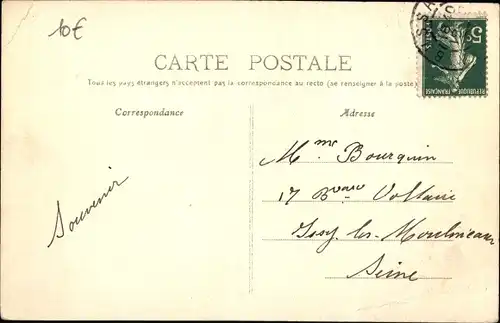 10€
5c
POSTES
REPUBLIQUE FRANÇAISE
CARTE POSTALE
Tous les pays étrangers n'acceptent pas la correspondance au recto (se renseigner à la poste)
Correspondance
Adresse
Souvenir
Mme Bourquin
17 Bvard Voltaire
Issy-les-Moulineaux
Seine